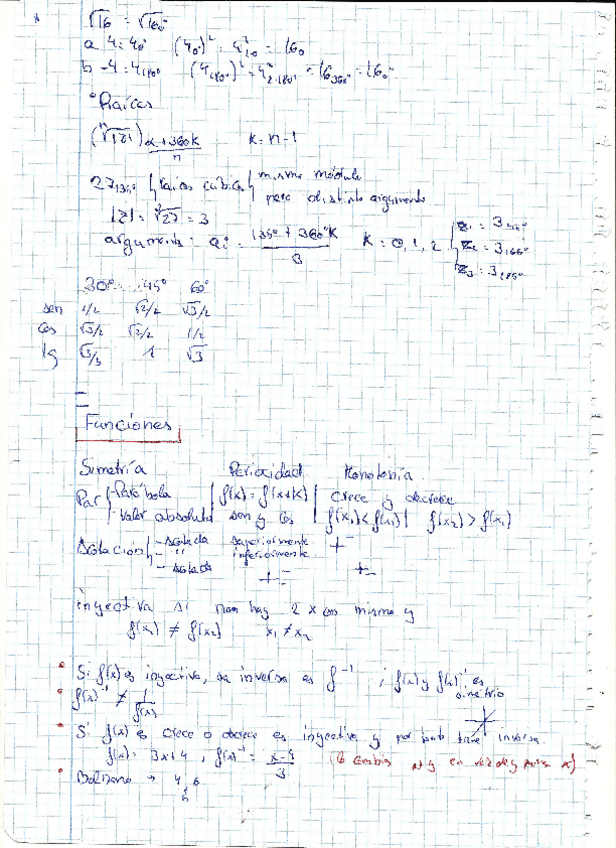 √16 = √16₀°
a 4 = 4₀° (4₀°)² = 4²₂.₀ = 16₀
b -4 = 4₁₈₀° (4₁₈₀°)² = 4²₂.₁₈₀° = 16₃₆₀° = 16₀°
Raíces
(ⁿ√|z|) α+360k/n k = n-1
27₁₃₅° raíces cúbicas mismo módulo
pero distinto argumento
|z| = ³√27 = 3
argumento: αi = 135° + 360°K / 3 K = 0, 1, 2 z₁ = 3₄₅°
z₂ = 3₁₆₅°
z₃ = 3₂₈₅°
30° 45° 60°
sen 1/2 √2/2 √3/2
cos √3/2 √2/2 1/2
tg √3/3 1 √3
Funciones
Simetría Periocidad Monotonía
Par - Parábola f(x) = f(x+K) crece y decrece
- Valor absoluto sen y cos f(x₁) < f(x₁) f(x₂) > f(x₁)
Acotación - Acotada superiormente
- " inferiormente
- Acotada
inyectiva si non hay 2 x con mismo y
f(x₁) ≠ f(x₂) x₁ ≠ x₂
Si f(x) es inyectiva, sa inversa es f⁻¹ ; f(x) y f(x)⁻¹ es
simétrio
f(x)⁻¹ ≠ 1/f(x)
Si f(x) es crece o decrece es inyectiva y por tanto tiene inversa.
f(x) = 3x+4, f(x)⁻¹ = x-4/3
Bolzano → 4,6